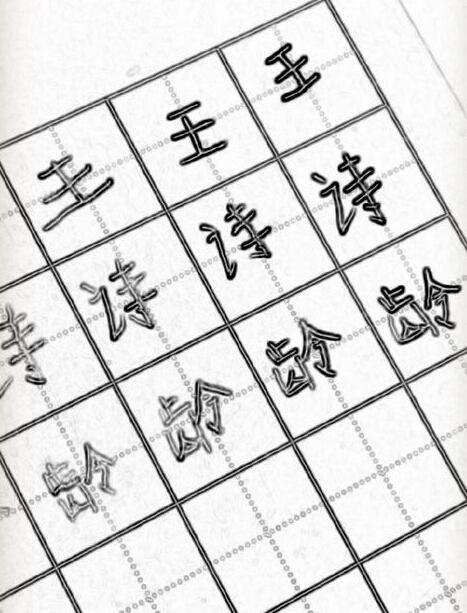 王王王
诗诗诗诗
龄龄龄龄